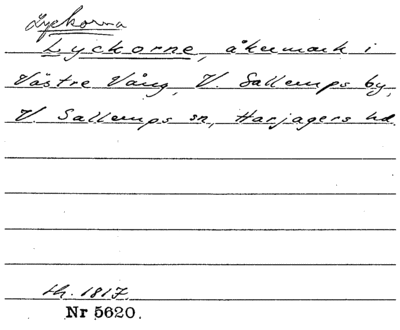 Lyckorna
Lyckorne, åkermark i
Västre Vång, V. Sallerups by,
V. Sallerups sn, Harjagers hd.
th. 1817.
Nr 5620.